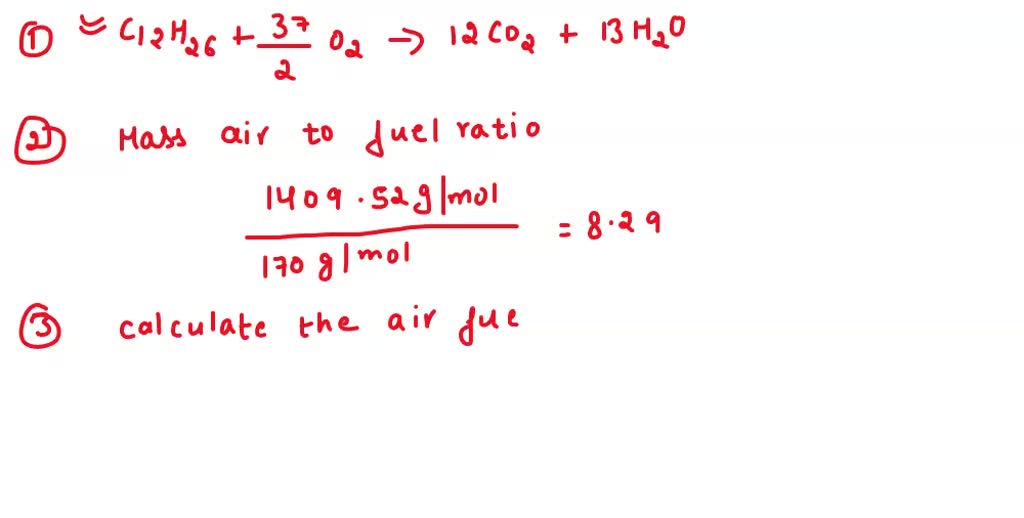 ① ≈ C12H26 + 37/2 O2 → 12CO2 + 13H2O
② Mass air to fuel ratio
1409.52g|mol
= 8.29
170g|mol
③ calculate the air fue